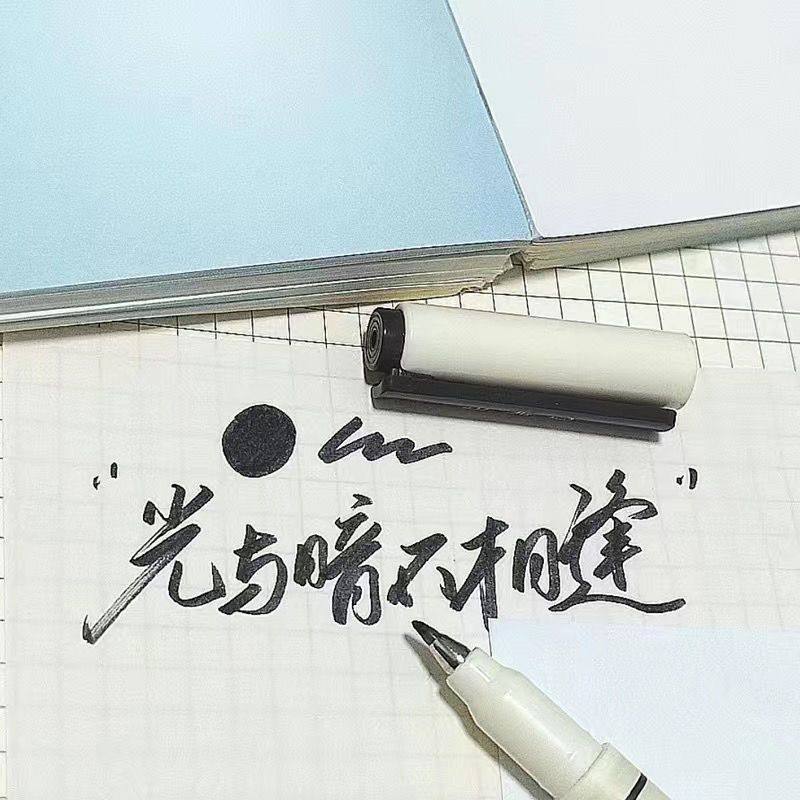 “光与暗不相逢”